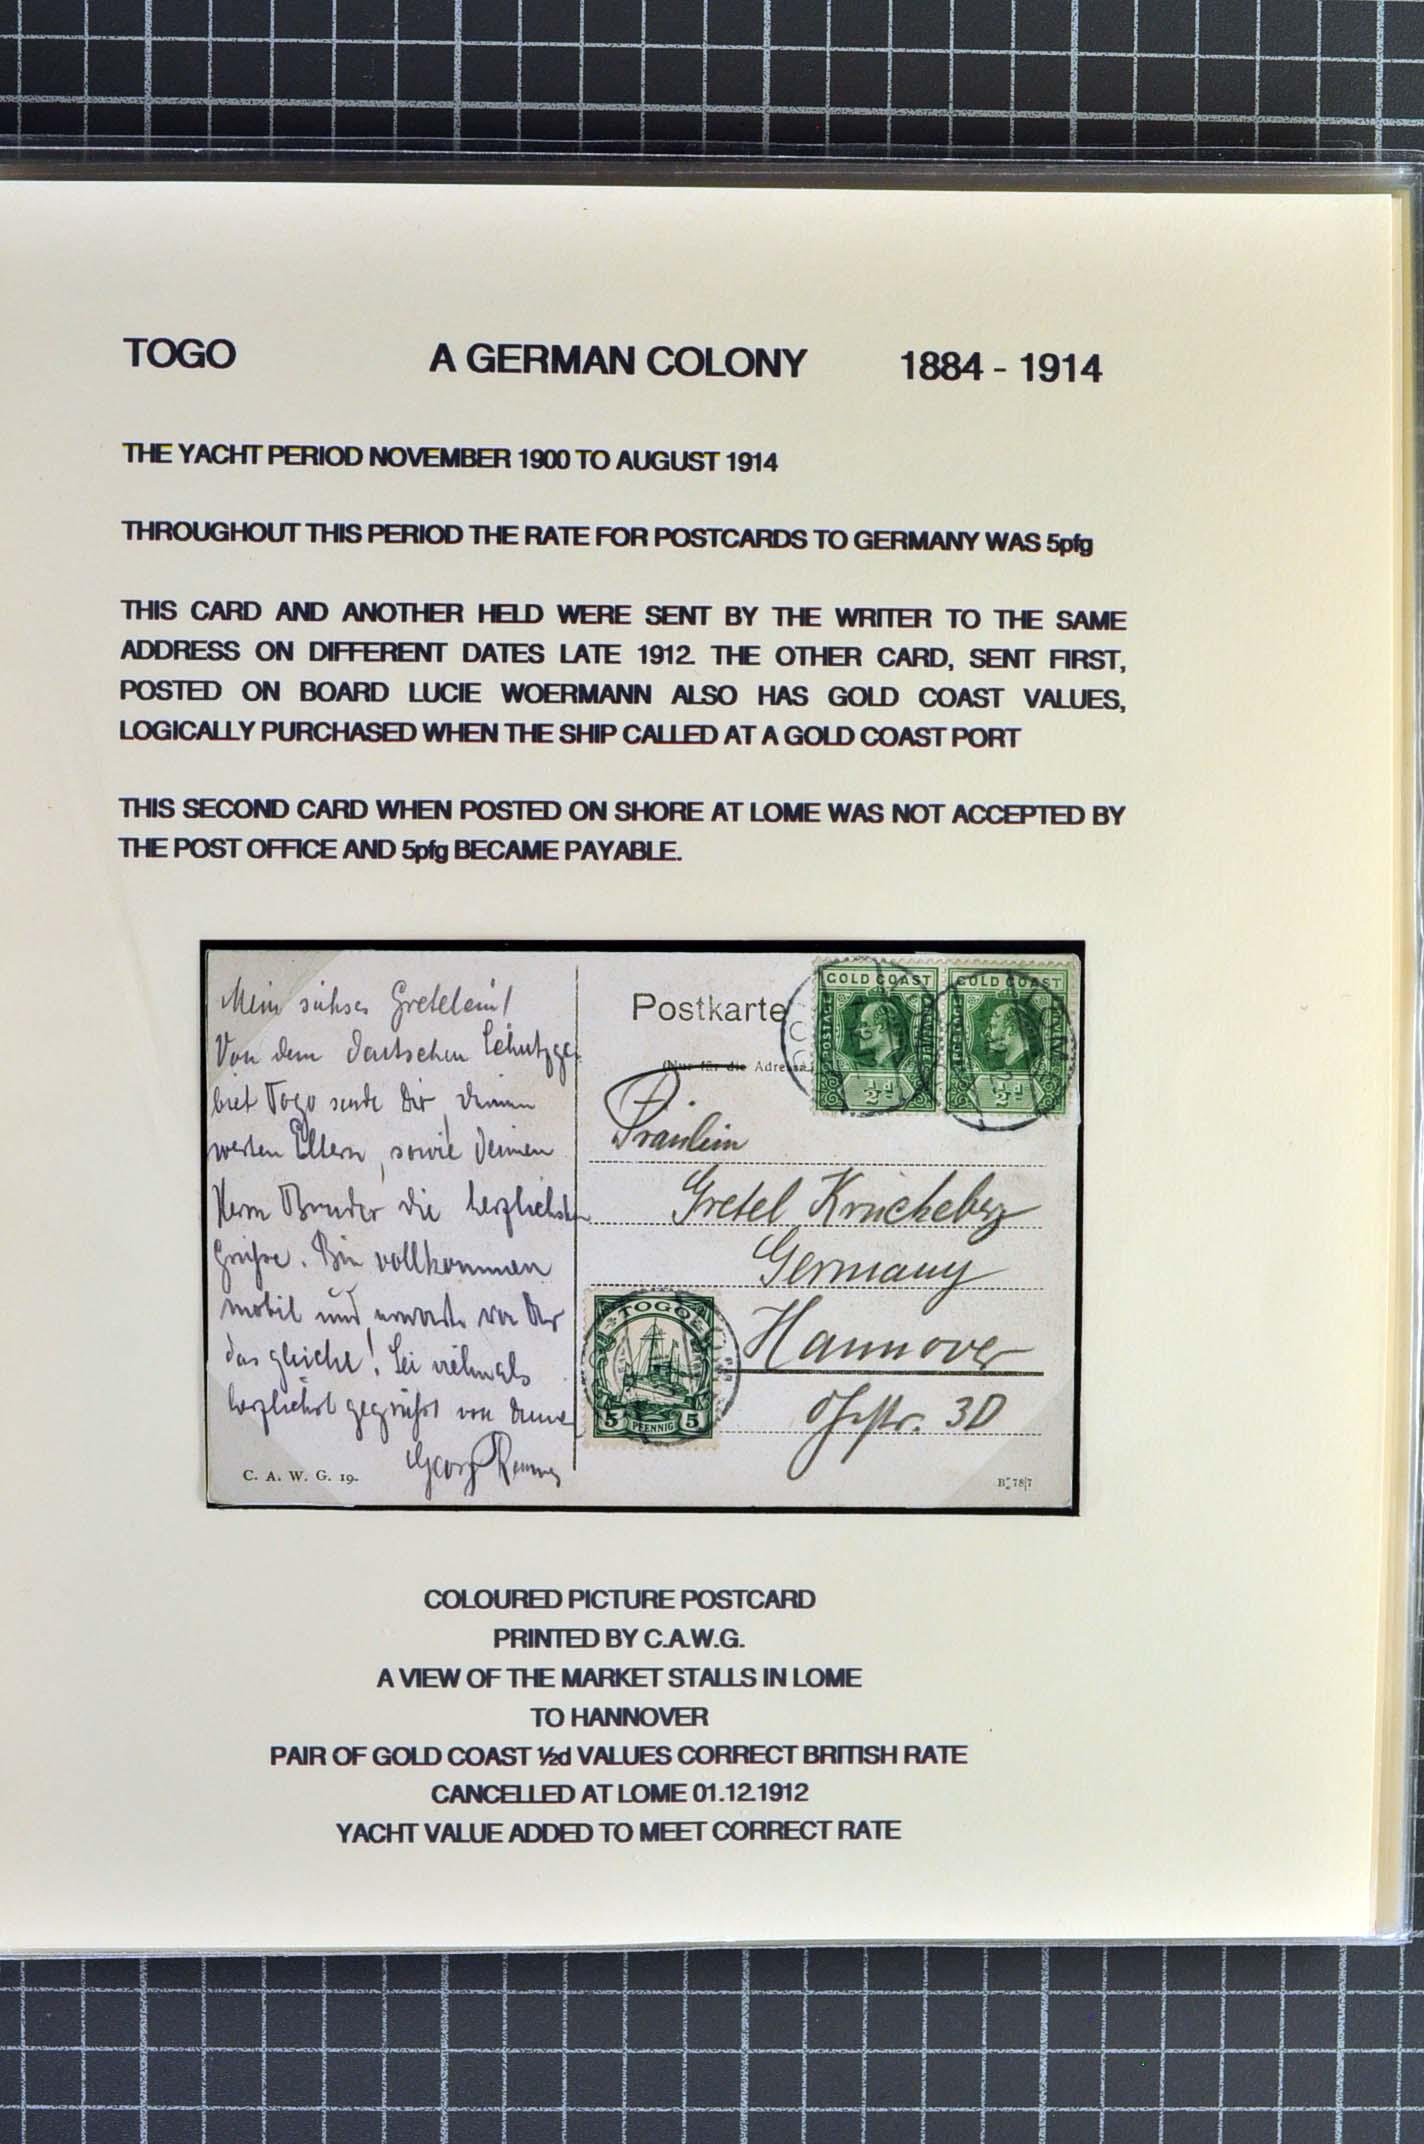 TOGO A GERMAN COLONY 1884 - 1914
THE YACHT PERIOD NOVEMBER 1900 TO AUGUST 1914
THROUGHOUT THIS PERIOD THE RATE FOR POSTCARDS TO GERMANY WAS 5pfg
THIS CARD AND ANOTHER HELD WERE SENT BY THE WRITER TO THE SAME
ADDRESS ON DIFFERENT DATES LATE 1912. THE OTHER CARD, SENT FIRST,
POSTED ON BOARD LUCIE WOERMANN ALSO HAS GOLD COAST VALUES,
LOGICALLY PURCHASED WHEN THE SHIP CALLED AT A GOLD COAST PORT
THIS SECOND CARD WHEN POSTED ON SHORE AT LOME WAS NOT ACCEPTED BY
THE POST OFFICE AND 5pfg BECAME PAYABLE.
Mein süsses Gretelein!
Von dem deutschen Schutzge-
biet Togo sende Dir, deinen
werten Eltern, sowie deinen
Herrn Bruder die herzlichsten
Grüsse. Bin vollkommen
mobil und erwarte von Dir
das gleiche! Sei vielmals
herzlichst gegrüsst von deinem
Georg
C. A. W. G. 19.
Postkarte
(Nur für die Adresse)
GOLD COAST
POSTAGE
½d
GOLD COAST
POSTAGE
½d
Fräulein
Gretel Krückeberg
Germany
Hannover
3D
TOGO
5 PFENNIG 5
78/7
COLOURED PICTURE POSTCARD
PRINTED BY C.A.W.G.
A VIEW OF THE MARKET STALLS IN LOME
TO HANNOVER
PAIR OF GOLD COAST ½d VALUES CORRECT BRITISH RATE
CANCELLED AT LOME 01.12.1912
YACHT VALUE ADDED TO MEET CORRECT RATE